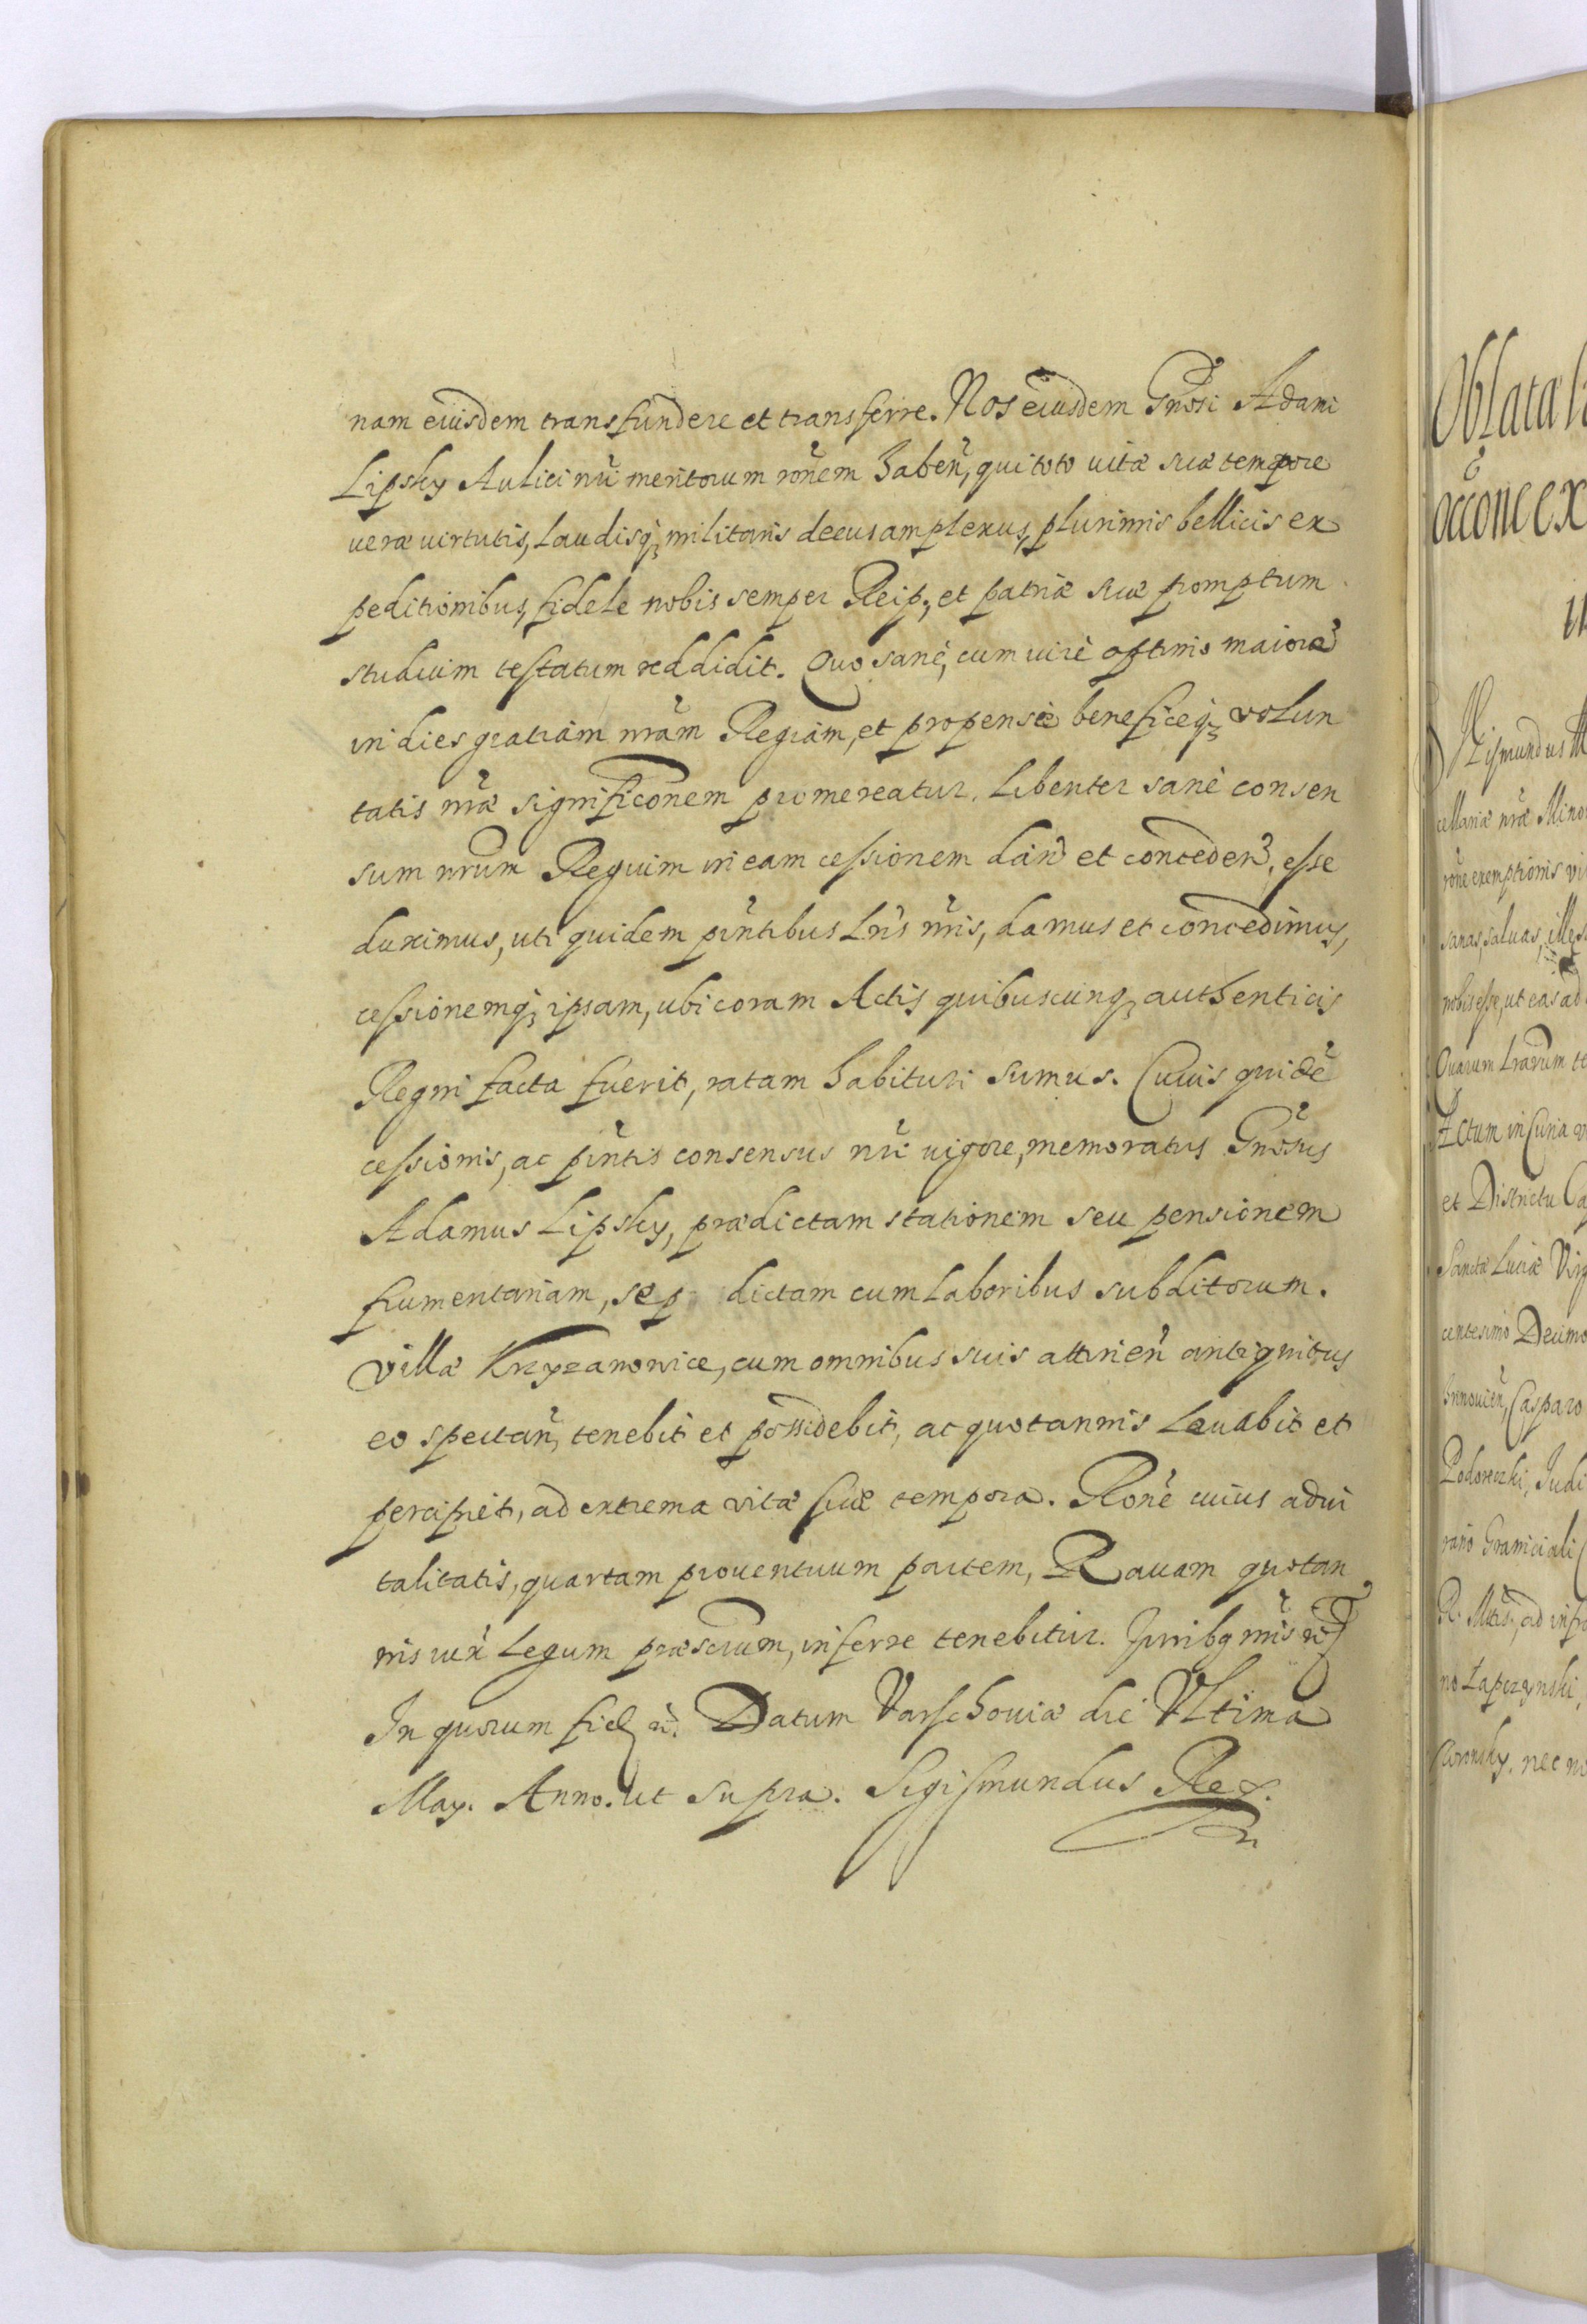 nam eiusdem transfundere et transferre. Nos eiusdem Gnosi Adami
Lipsky Aulici nri meritorum ronem haben, qui toto uitæ suæ tempore
ueræ uirtutis, laudisq militaris decus amplexus, plurimis bellicis ex
peditionibus, fidele nobis semper Reip, et patriæ suæ promptum
studium testatum reddidit. Quo sane, cum uire optimo maiore
in dies gratiam nram Regiam, et propensæ beneficeq volun
tatis nræ significonem promereatur. Libenter sane consen
sum nrum Regium in eam cessionem dan et conceden, esse
duximus, uti quidem pntibus Lris nris, damus et concedimus,
cessionemq ipsam, ubi coram Actis quibuscunq authenticis
Regni facta fuerit, ratam habituri sumus. Cuius quide
cessionis, ac pntis consensus nri uigore, memoratus Gnosus
Adamus Lipsky, prædictam stationem seu pensionem
frumentariam, sep dictam cum laboribus subditorum.
villæ Krzyzanowice, cum omnibus suis attinen antiquitus
eo spectan, tenebit et possidebit, ac quotannis leuabit et
percipiet, ad extrema vitæ suæ tempora. Rone cuius adui
talitatis, quartam prouentuum partem, Rauam quotan
nis iux legum præscrum, inferre tenebitur. Juribq nris
In quorum fid Datum Varschouiæ die Vltima
May. Anno. ut supra. Sigismundus Rex.
Oblata
occone ex
Sigismundus
cellariæ nræ Mino
rone exemptionis
sanas, saluas, illes
nobis esse, ut eas ad
Quarum Lrarum te
Actum in Curia
et Districtu
Sanctæ Luciæ Virg
centesimo Decimo
Casparo
Judi
Graniciali
R. Mtis, ad infr
nec no